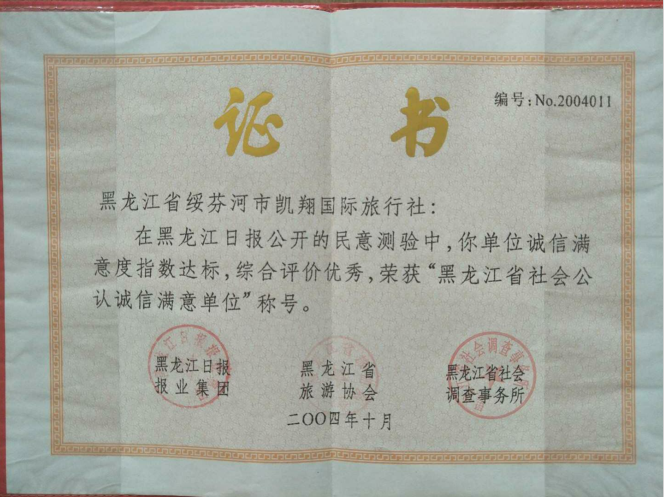 证书
编号:No.2004011
黑龙江省绥芬河市凯翔国际旅行社:
在黑龙江日报公开的民意测验中,你单位诚信满
意度指数达标,综合评价优秀,荣获“黑龙江省社会公
认诚信满意单位”称号。
黑龙江日报
报业集团
黑龙江省
旅游协会
黑龙江省社会
调查事务所
二〇〇四年十月